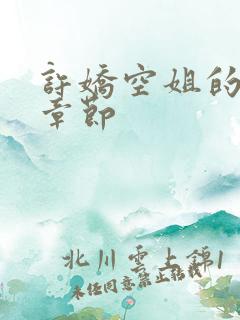 許嬌空姐的
章節
北川雲上錦1
未经同意禁止转载